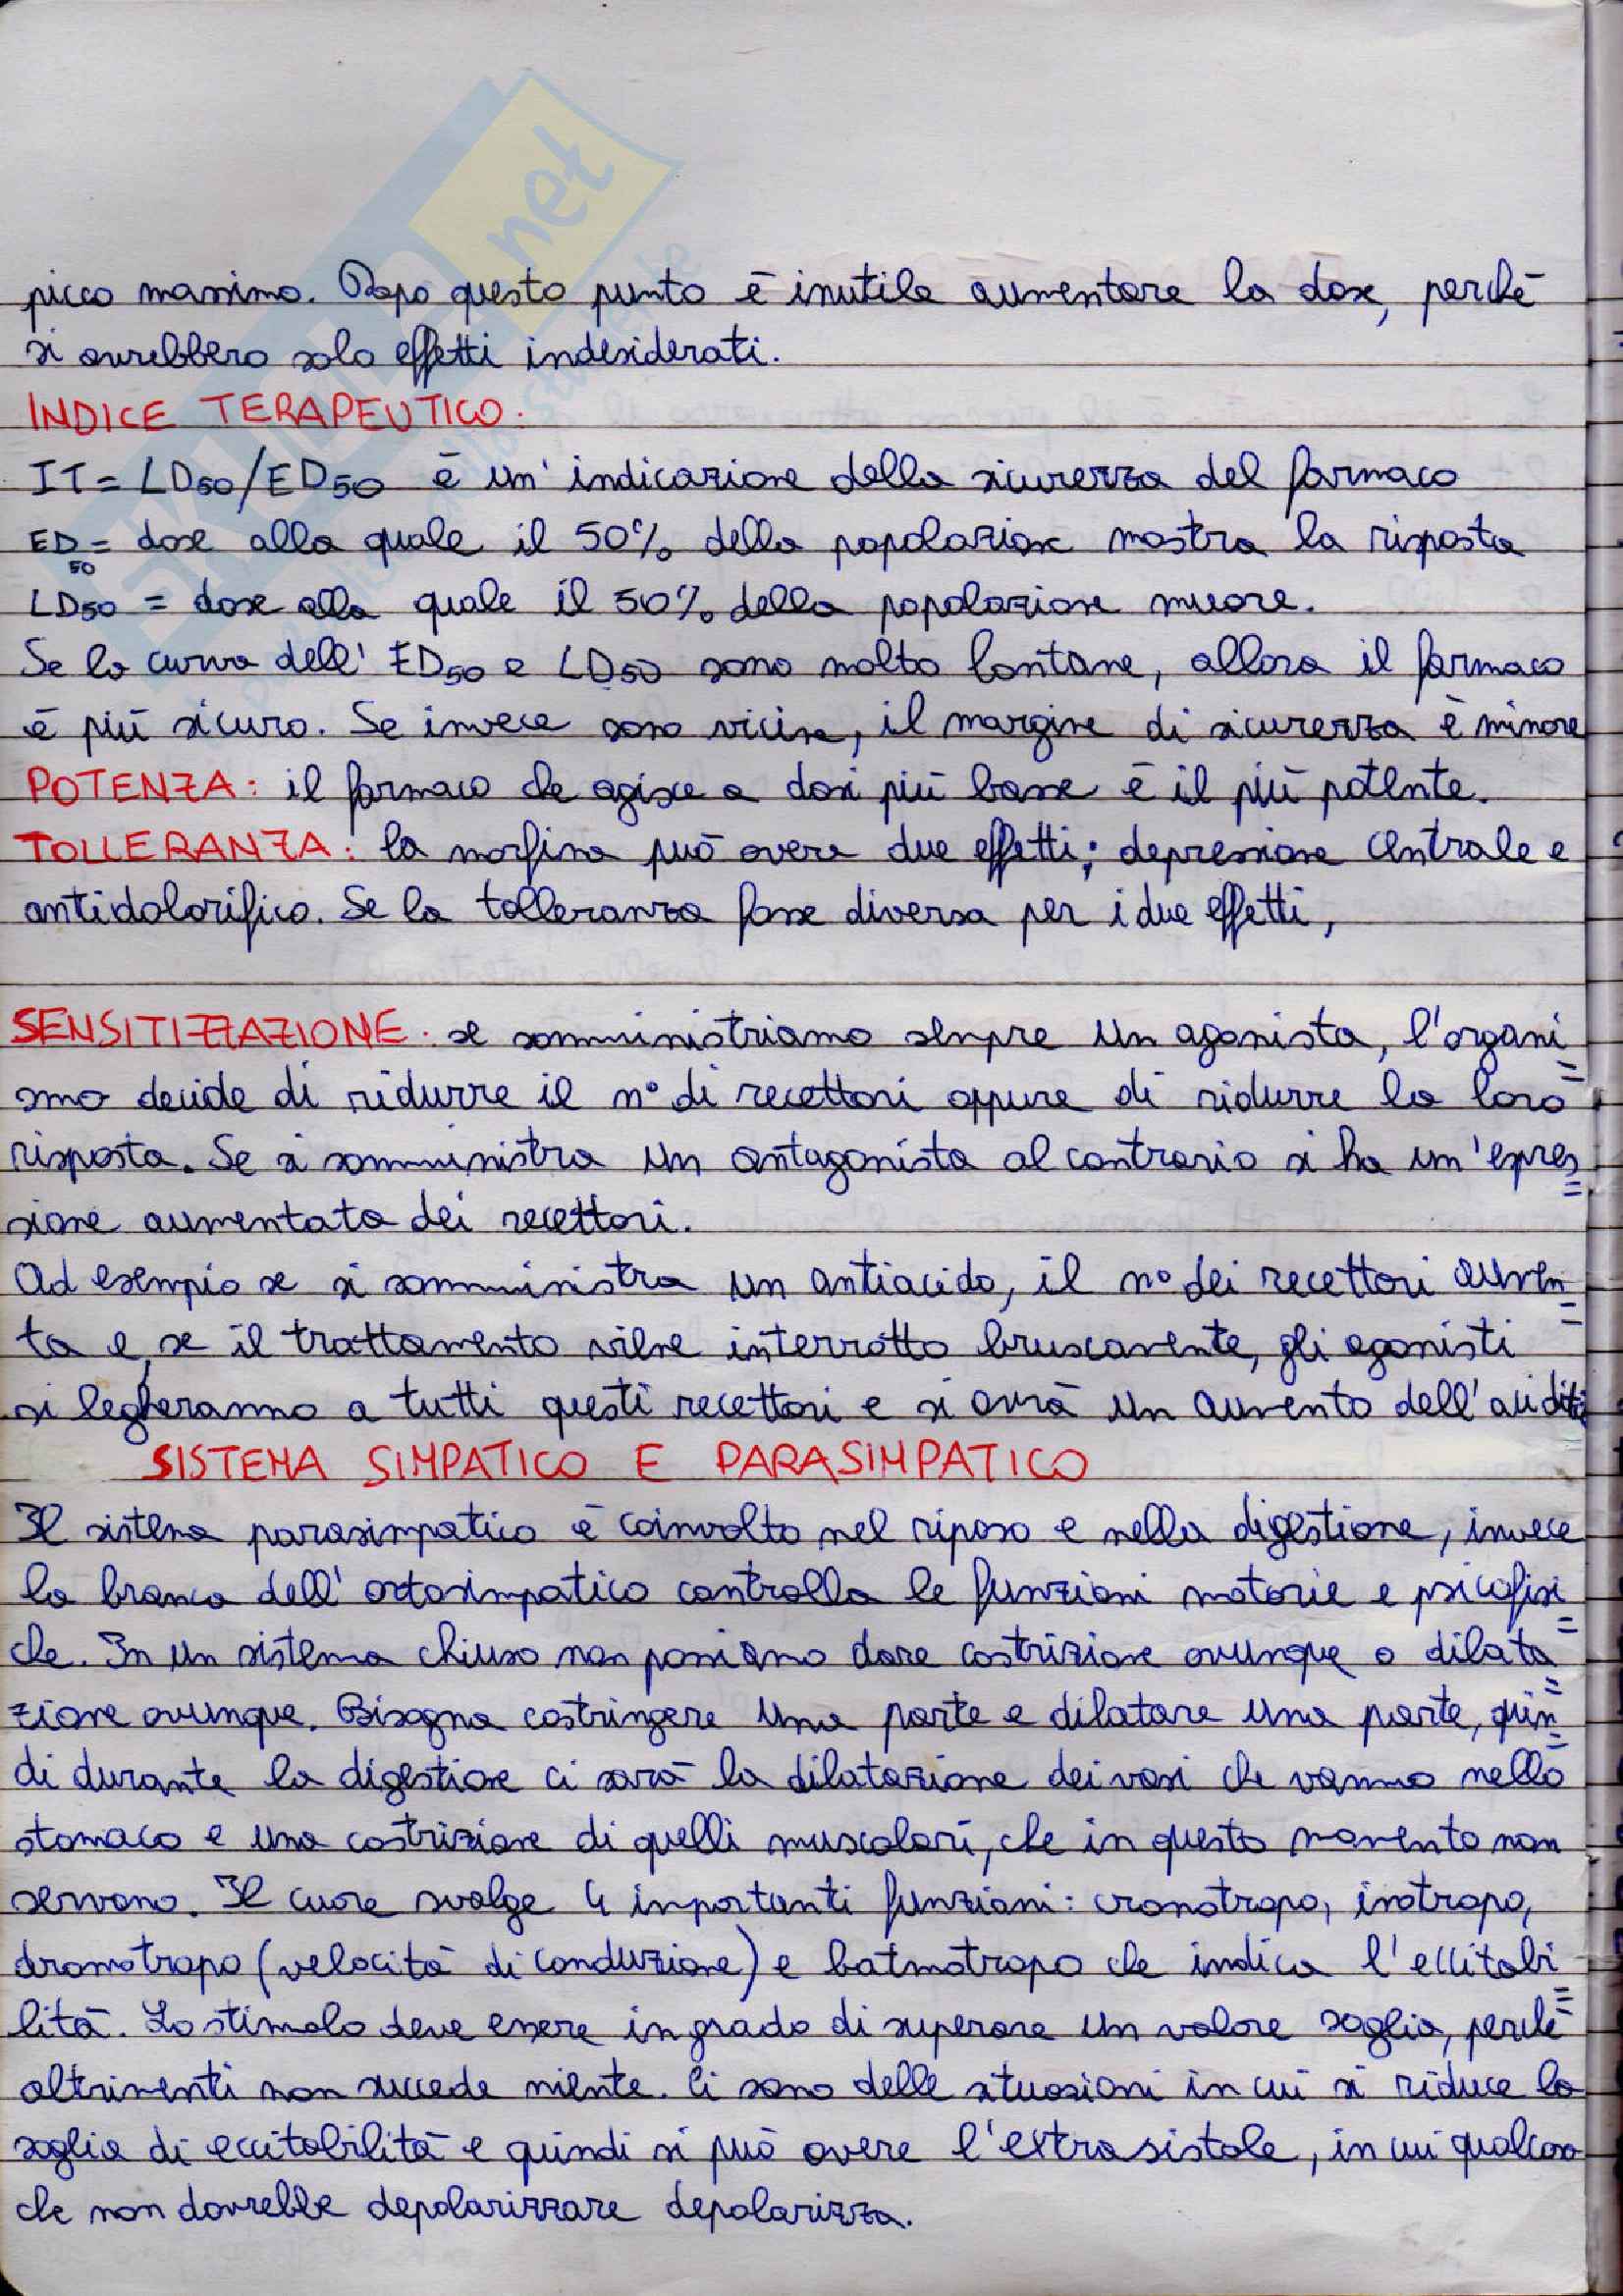 SKUOLA.net
picco massimo. Dopo questo punto è inutile aumentare la dose, perchè
si avrebbero solo effetti indesiderati.
INDICE TERAPEUTICO:
IT = LD50/ED50 è un'indicazione della sicurezza del farmaco
ED50 = dose alla quale il 50% della popolazione mostra la risposta
LD50 = dose alla quale il 50% della popolazione muore.
Se la curva dell'ED50 e LD50 sono molto lontane, allora il farmaco
è più sicuro. Se invece sono vicine, il margine di sicurezza è minore
POTENZA: il farmaco che agisce a dosi più basse è il più potente.
TOLLERANZA: la morfina può avere due effetti: depressione centrale e
antidolorifico. Se la tolleranza fosse diversa per i due effetti,
SENSITIZZAZIONE: se somministriamo sempre un agonista, l'organi=
smo decide di ridurre il n° di recettori oppure di ridurre la loro
risposta. Se si somministra un antagonista al contrario si ha un'espres=
sione aumentata dei recettori.
Ad esempio se si somministra un antiacido, il n° dei recettori aumen=
ta e, se il trattamento viene interrotto bruscamente, gli agonisti
si legheranno a tutti questi recettori e si avrà un aumento dell'acidità
SISTEMA SIMPATICO E PARASIMPATICO
Il sistema parasimpatico è coinvolto nel riposo e nella digestione, invece
la branca dell'ortosimpatico controlla le funzioni motorie e psicofisi=
che. In un sistema chiuso non possiamo dare costrizione ovunque o dilata=
zione ovunque. Bisogna costringere una parte e dilatare una parte, quin=
di durante la digestione ci sarà la dilatazione dei vasi che vanno nello
stomaco e una costrizione di quelli muscolari, che in questo momento non
servono. Il cuore svolge 4 importanti funzioni: cronotropo, inotropo,
dromotropo (velocità di conduzione) e batmotropo che indica l'eccitabi=
lità. Lo stimolo deve essere in grado di superare un valore soglia, perchè
altrimenti non succede niente. Ci sono delle situazioni in cui si riduce la
soglia di eccitabilità e quindi si può avere l'extrasistole, in cui qualcosa
che non dovrebbe depolarizzare depolarizza.